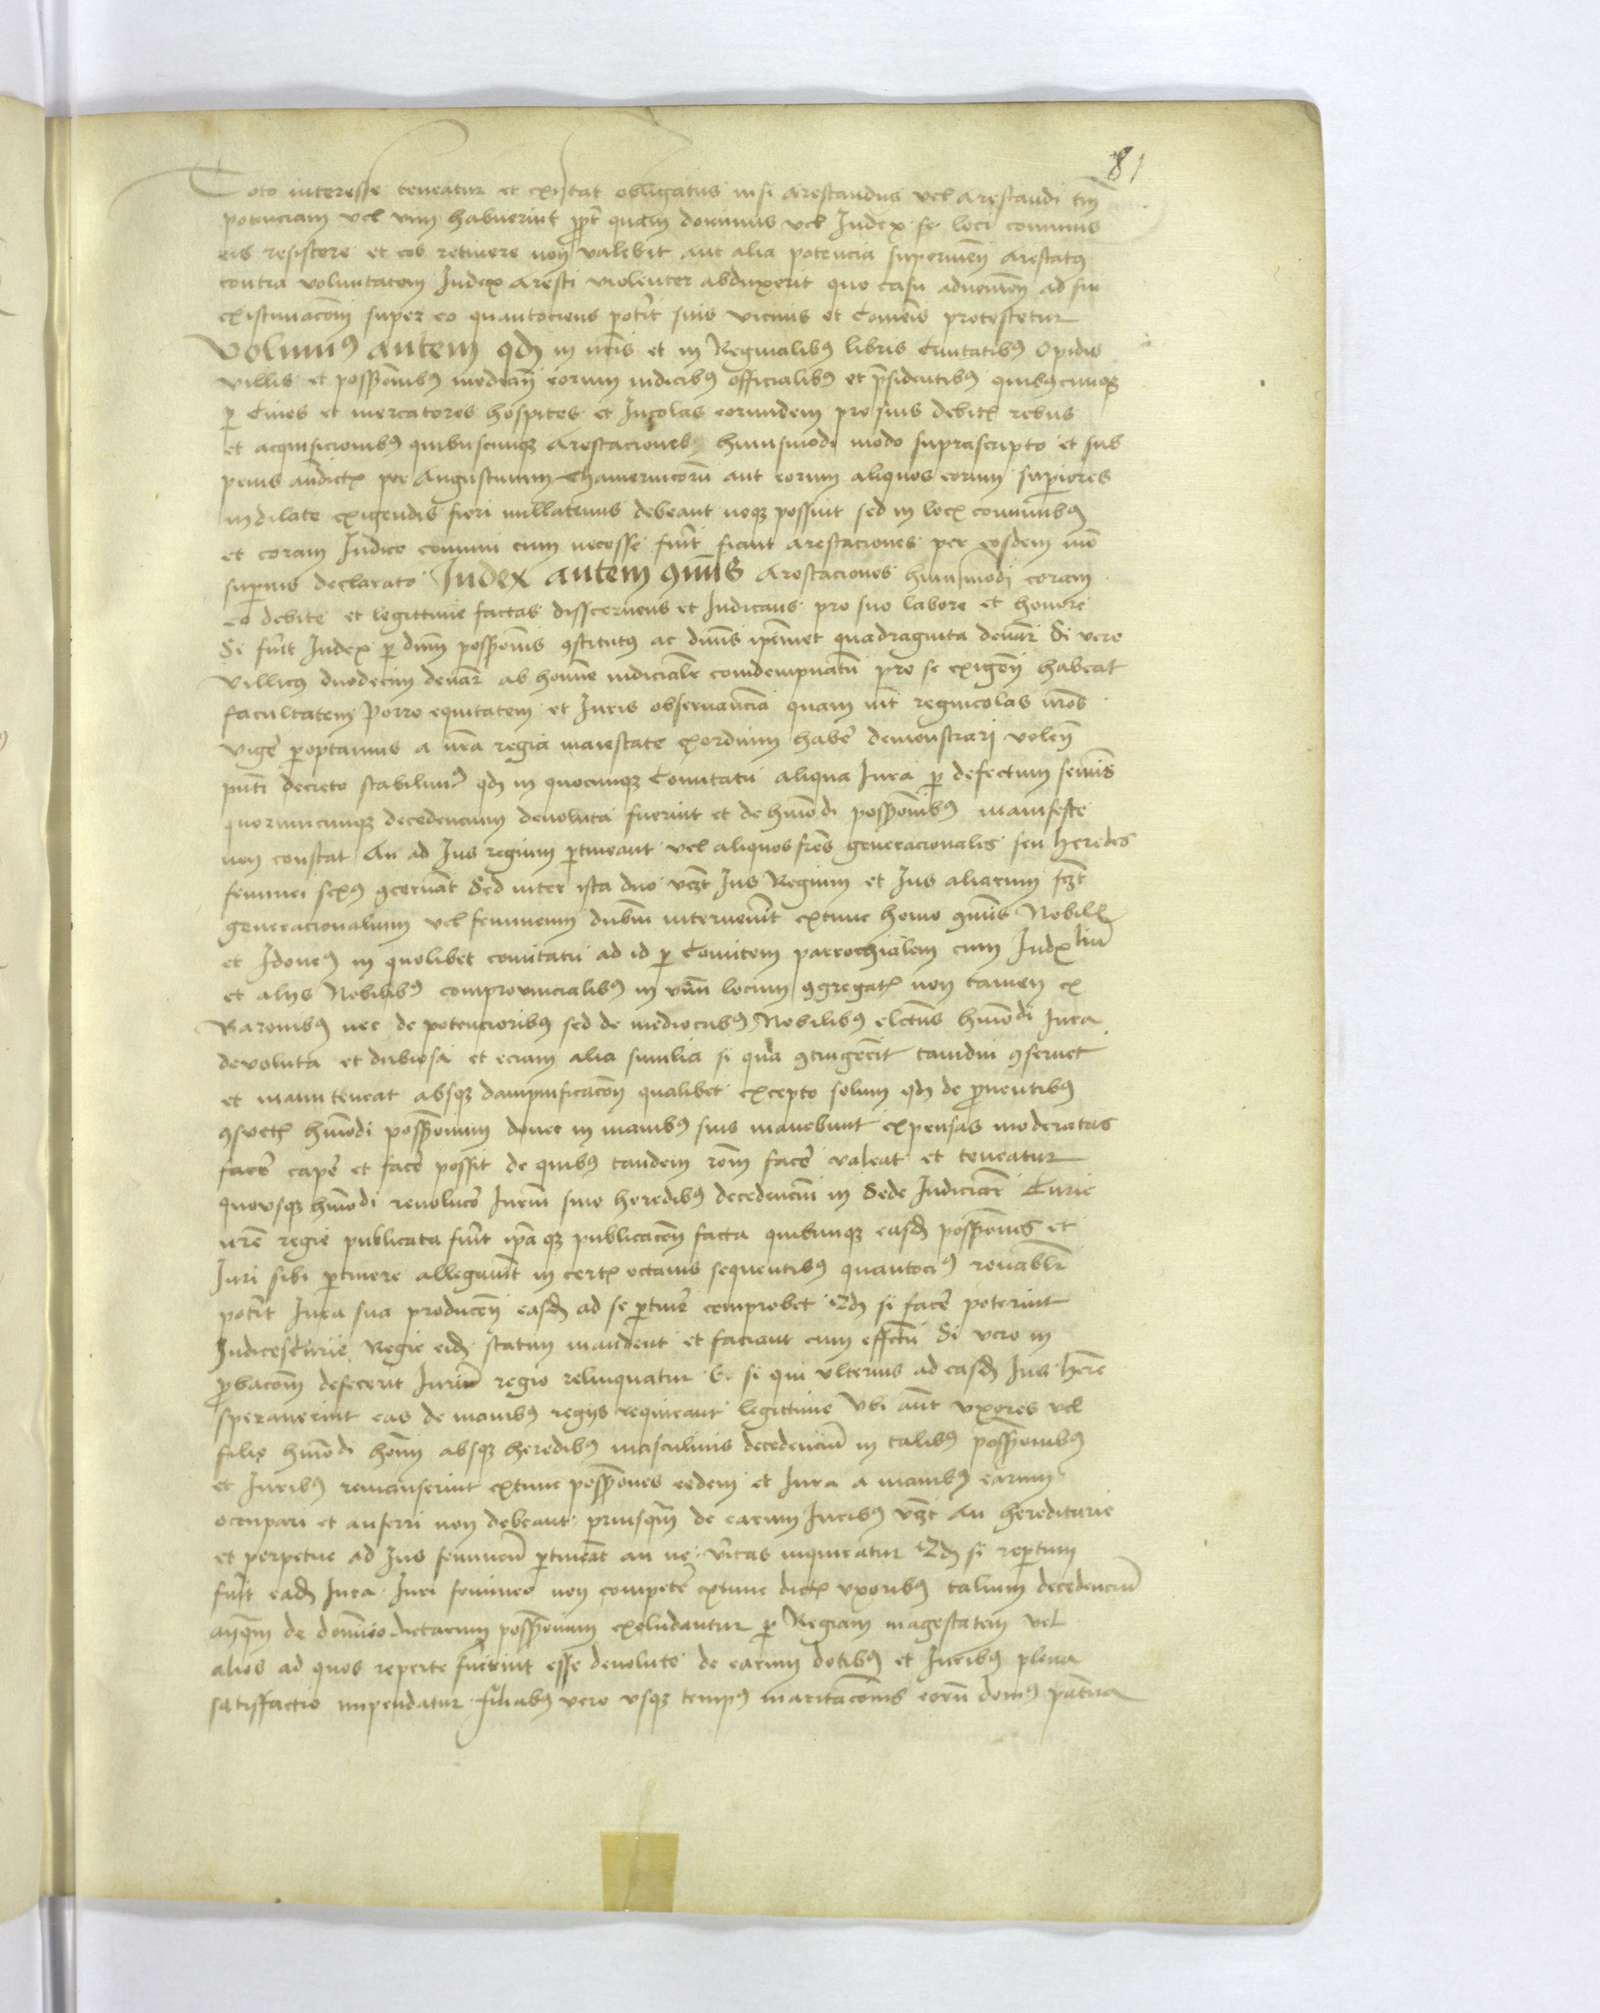 81
Toto interesse teneatur et existat obligatus nisi arestandus vel arestandi tm̄
potenciam vel vim habuerint ppt̄ quam dominus vel Iudex se loci cōmunis
eis resistere et eos retinere non valebit aut alia potencia superueniēn arestatꝰ
contra voluntatem Iudex aresti violenter abduxerit quo casu aduenieñ ad sui
existimacōem super eo quantociens pot̄it suis vicinis et Comēis protestetur
Volumꝰ autem qd in nr̄is et in Reginalibꝰ libris Ciuitatibꝰ Opidis
villis et possessioībꝰ mediañ eorum iudicibꝰ officialibꝰ et p̄sidentibꝰ quibuscunqꝫ
p Ciues et mercatores hospites et Incolas eorundem pro suis debitis rebus
et acquisicionibꝰ quibuscunqꝫ arestaciones huiusmodi modo suprascripto et sub
penis andictis per Augustinum Thauernicorū aut eorum aliquos eorum supiores
indilate exigendis fieri nullatenus debeant neqꝫ possint sed in locis comunibꝰ
et coram Iudice comuni cum necesse fūit fiant arestaciones per eosdem mō
superius declarato Iudex autem ꝯmūis arestaciones huiusmodi coram
eo debite et legittime factas discernens et Iudicans pro suo labore et honore
Si fūit Iudex p dnm̄ possessionis ꝯstitutꝰ ac dnūs ipemet quadraginta deñar Si vero
villicus duodecim deñar ab homine iudicialr̄ condempnatū pro se exigeñ habeat
facultatem Porro equitatem et Iuris obseruanciā quam int̄ regnicolas nr̄os
vigē peroptamus a nr̄a regia maiestate exordium habē demonstrari voleñ
pn̄ti decreto stabilimꝰ qd in quocunqꝫ Comitatu aliqua Iura p defectum seminis
quorumcunqꝫ decedencium deuoluta fuerint et de hmōdi possessioībꝰ manifeste
non constat An ad Ius regium ptineant vel aliquos frēs generacionalis seu heredes
feminei sexꝰ ꝯcernāt Sed inter ista duo vꝫt Ius Regium et Ius aliarum scꝫt
generacionalium vel feminenm dubiū interuenerit extunc homo ꝯmūis Nobilis
et Idoneꝰ in quolibet comitatu ad id p Comitem parrochialem cum Iudꝭliū
et alijs Nobilibꝰ comprouincialibꝰ in vnū locum ꝯgregatꝭ non tamen ex
Baronibꝰ nec de potencioribꝰ sed de mediocribꝰ Nobilibꝰ elctūs hmōdi Iura
deuoluta et dubiosa et eciam alia similia si qua ꝯtingerit tamdiu ꝯseruet
et manuteneat absqꝫ dampnificacōe qualibet excepto solum qd de ꝓuentibꝰ
ꝯsuetꝭ hmōdi possessionum donec in manibꝰ suis manebunt expensas moderatas
facē capē et facē possit de quibꝰ tandem rōem facē valeat et teneatur
Quousqꝫ hmōdi reuolucō Iurium sine heredibꝰ decedenciū in Sede Iudiciāi Curie
nr̄e regie publicata fūit ip̄a qꝫ publicacōe facta quicunqꝫ easdē possessiones et
Iuri sibi ptinere allegauit in certꝭ octauis sequentibꝰ quantociꝰ rōnabil̄r
pot̄it Iura sua producen̄ easdē ad se ptinē comprobet Qd si facē poterint
Iudices Curie Regie eisdē statum mandent et faciant cum effectū Si vero in
ꝓbacōe defecerit Iurie regio relinquatur Et si qui vlterius ad easdē Ius hēre
sperauerint eas de manibꝰ regijs requirant legittime Vbi aūt vxores vel
filie hmōdi hoīum absqꝫ heredibꝰ masculinis decedenciū in talibꝰ possessionibꝰ
et Iuribꝰ remanserint extunc possessiones eedem et Iura a manibꝰ earum
occupari et auferri non debeant priusqm̄ de earum Iuribꝰ vꝫt An hereditarie
et perpetue ad Ius femineū ptineāt an ne vitas inquiratur Qd si repertum
fūit eadē Iura Iuri femineo non competē extunc dictꝭ vxoribꝰ talium decedenciū
anqm̄ de dominio dictarum possessionum excludantur p Regiam magestatem vel
alios ad quos reperte fuerint esse deuolute de earum dotibꝰ et Iuribꝰ plena
satisfactio impendatur filiabꝰ vero vsqꝫ tempꝰ maritacōnis eorū domꝰ paterna